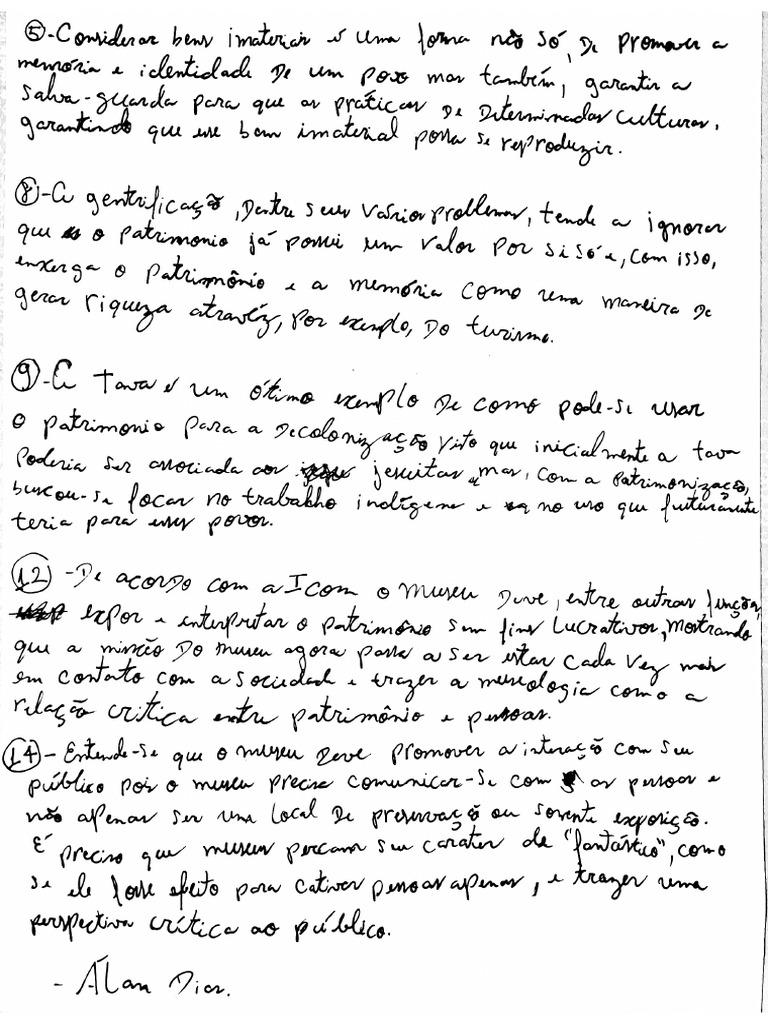 ⑤-Considerar bens imateriais é uma forma não só, de promover a
memória e identidade de um povo mas também, garantir a
salva-guarda para que as práticas de determinadas culturas,
garantindo que esse bem imaterial possa se reproduzir.
⑧-A gentrificação, dentre seus vários problemas, tende a ignorar
que o patrimonio já possui um valor por si só e, com isso,
enxerga o patrimônio e a memória como uma maneira de
gerar riqueza atravéz, por exemplo, do turismo.
⑨-A Tava é um ótimo exemplo de como pode-se usar
o patrimonio para a decolonização visto que inicialmente a tava
poderia ser associada aos jesuitas mas, com a patrimonização,
buscou-se focar no trabalho indígena e no uso que futuramente
teria para esses povos.
⑫-De acordo com a Icom o museu deve, entre outras funções,
expor e interpretar o patrimônio sem fins lucrativos, mostrando
que a missão do museu agora passa a ser estar cada vez mais
em contato com a sociedade e trazer a museologia como a
relação crítica entre patrimônio e pessoas.
⑭-Entende-se que o museu deve promover a interação com seu
público pois o museu precisa comunicar-se com as pessoas e
não apenas ser uma local de preservação ou somente exposição.
É preciso que museus percam seu carater de "fantástico", como
se ele fosse efeito para cativar pessoas apenas, e trazer uma
perspectiva crítica ao público.
- Álan Dias.